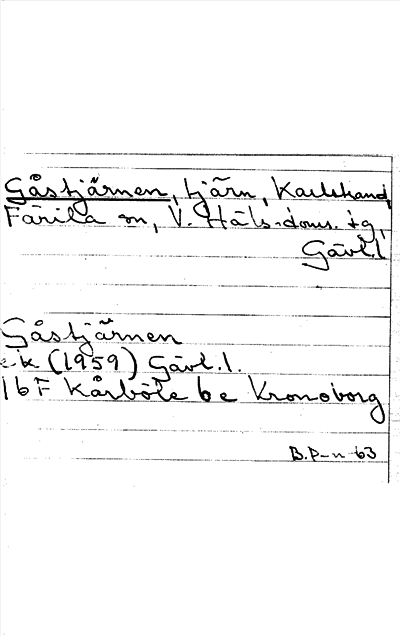 Gåstjärnen, tjärn, Karlstrand,
Färila sn, V. Häls. doms. tg,
Gävl.l
Gåstjärnen
ek (1959) Gävl.l.
16F Kårböle be Kronoborg
B.P-n 63